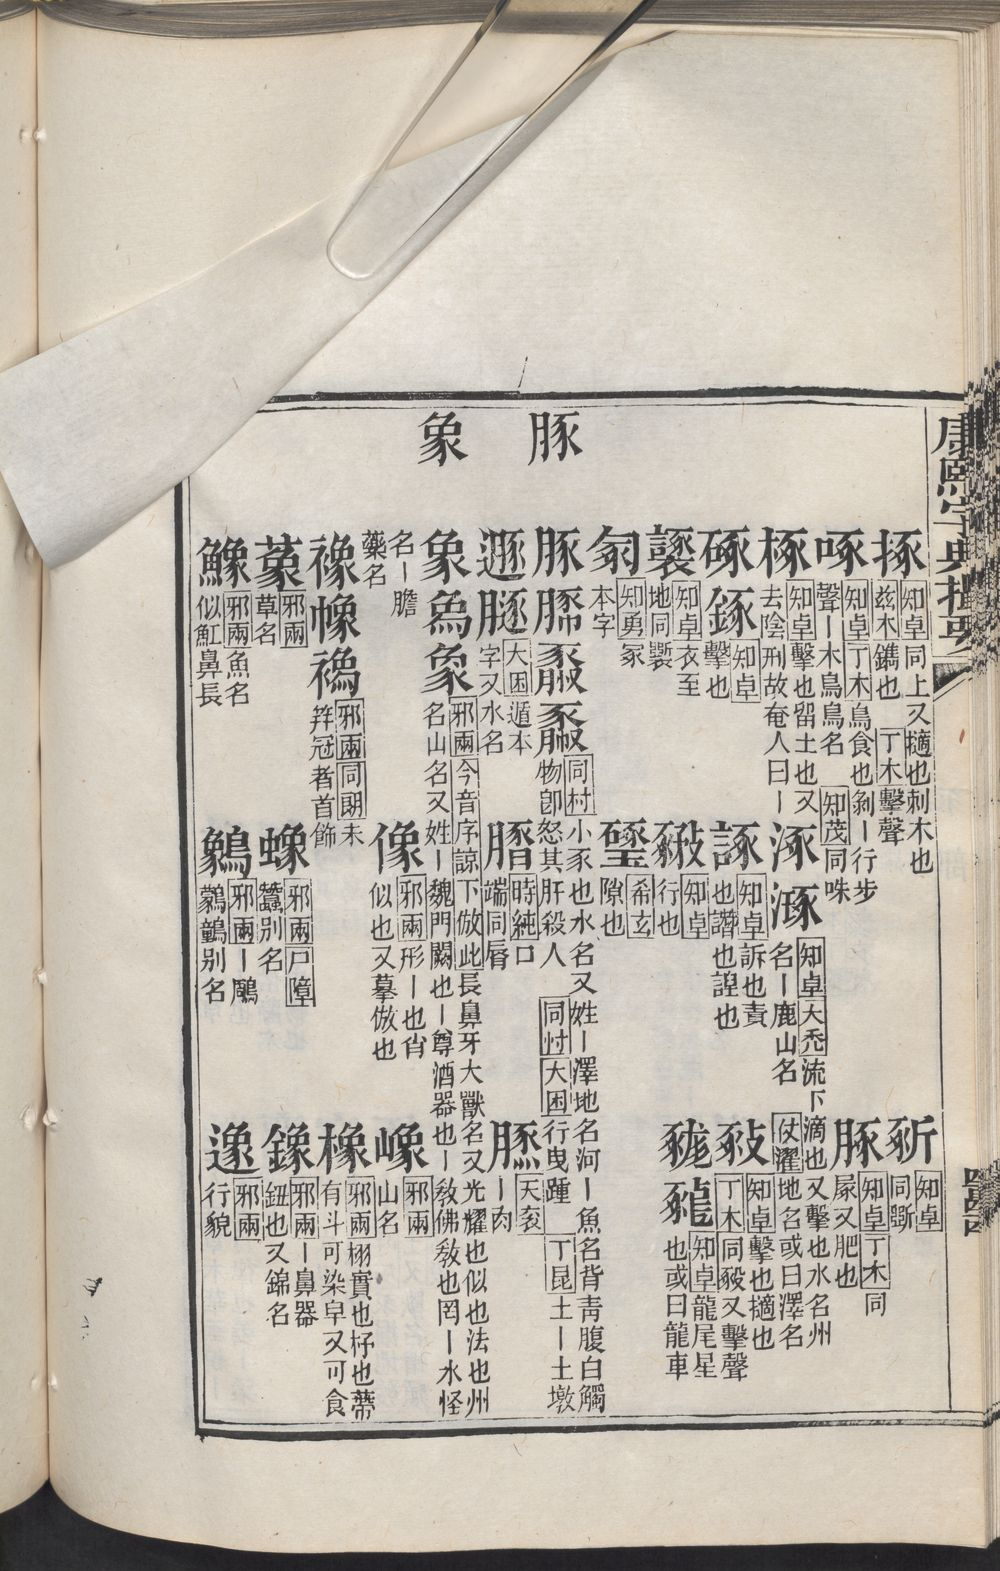 康熙字典撮要
豚
象
㧻 知卓同上又擿也刺木也
玆木鐫也 丁木擊聲
啄 知卓丁木鳥食也剝〡行步
聲〡木鳥鳥名 知茂同咮
椓 知卓擊也留土也又
去陰刑故奄人曰〡
硺
䥇 知卓
擊也
知卓衣至
地同襡
匔 知勇冢
本字
豣 知卓
同斲
豚 知卓丁木同
㞘又肥也
涿 知卓大禿流下滴也又擊也水名州
名〡鹿山名 仗濯地名或曰澤名
諑 知卓訴也責
也譖也諻也
知卓
行也
希玄
隙也
知卓擊也擿也
丁木同豛又擊聲
知卓龍尾星
也或曰龍車
豚 同村小豕也水名又姓〡澤地名河〡魚名背靑腹白觸
物卽怒其肝殺人 同忖大困行曳踵 丁昆土〡土墩
遯 大困遁本
字又水名
時純口
端同脣
天衮
〡肉
象 邪兩今音序諒下倣此長鼻牙大獸名又光耀也似也法也州
名山名又姓〡魏門闕也〡尊酒器也〡敎佛敎也罔〡水怪
名〡膽
藥名
像 邪兩形〡也肖
似也又摹倣也
嶑 邪兩
山名
襐 幜 邪兩同朗未
笄冠者首飾
橡 邪兩栩實也杼也蔕
有斗可染皁又可食
蒙 邪兩
草名
蟓 邪兩尸障
蠶別名
鐌 邪兩〡鼻器
鈕也又錦名
鱌 邪兩魚名
似魟鼻長
鷞 邪兩〡鵰
別名
邪兩
行貌